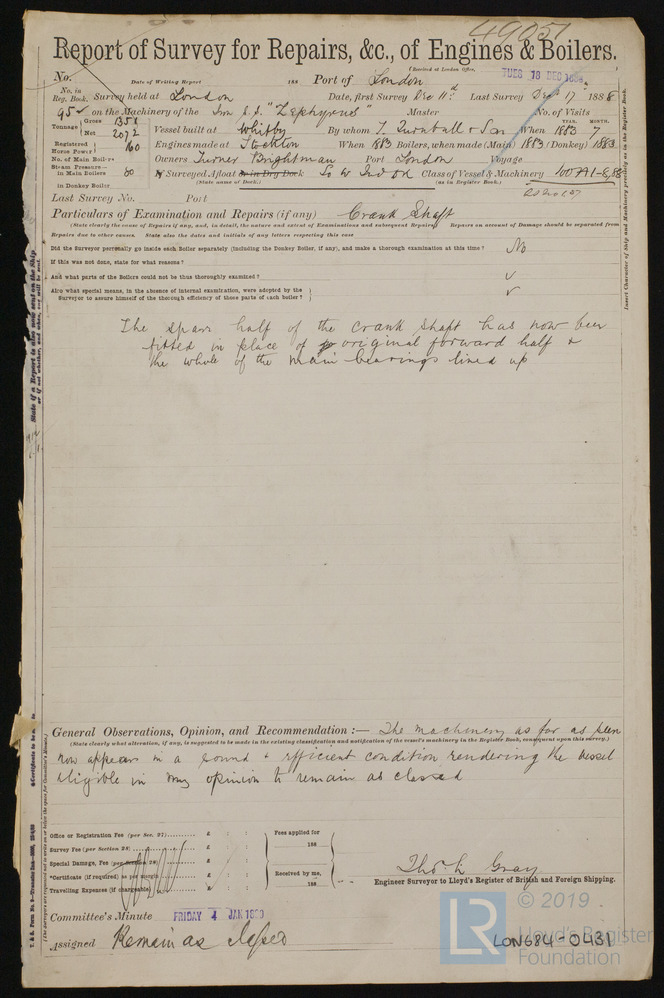 49051
Report of Survey for Repairs, &c., of Engines & Boilers.
(Received at London Office,
TUES 18 DEC 188
No. Date of Writing Report 188 Port of London
No. in Reg. Book. Survey held at London Date, first Survey Dec 11th Last Survey Dec 17th 1888
95 on the Machinery of the Iron S.S. "Zephyrus" Master No. of Visits
Tonnage Gross 1351 Net 2072 Vessel built at Whitby By whom T. Turnbull & Son When YEAR. 1883 MONTH. 7
Registered Horse Power 160 Engines made at Stockton When 1883 Boilers, when made (Main) 1883 (Donkey) 1883
No. of Main Boilers Owners Turner Brightman Port London Voyage
Steam Pressure— in Main Boilers 80 If Surveyed Afloat or in Dry Dock So W Ind Dk Class of Vessel & Machinery 100A1-8,88
(State name of Dock.) (as in Register Book.)
in Donkey Boiler
Last Survey No. Port
Particulars of Examination and Repairs (if any) Crank Shaft
(State clearly the cause of Repairs if any, and, in detail, the nature and extent of Examinations and subsequent Repairs. Repairs on account of Damage should be separated from
Repairs due to other causes. State also the dates and initials of any letters respecting this case
Did the Surveyor personally go inside each Boiler separately (including the Donkey Boiler, if any), and make a thorough examination at this time? No
If this was not done, state for what reasons?
And what parts of the Boilers could not be thus thoroughly examined? ✓
Also what special means, in the absence of internal examination, were adopted by the
Surveyor to assure himself of the thorough efficiency of those parts of each boiler? ✓
The spare half of the crank shaft has now been
fitted in place of original forward half &
the whole of the main bearings lined up
General Observations, Opinion, and Recommendation :— The machinery as far as seen
(State clearly what alteration, if any, is suggested to be made in the existing classification and notification of the vessel's machinery in the Register Book, consequent upon this survey.)
now appears in a sound & efficient condition rendering the vessel
eligible in my opinion to remain as classed
Office or Registration Fee (per Sec. 27) £ : : Fees applied for
Survey Fee (per Section 28) £ : : 188
Special Damage, Fee (per Section 28) £ : :
*Certificate (if required) as per margin £ : : Received by me,
Travelling Expenses (if chargeable) £ : : 188
Thos. L. Gray
Engineer Surveyor to Lloyd's Register of British and Foreign Shipping.
Committee's Minute FRIDAY 4 JAN 1889
Assigned Remain as classed
Insert Character of Ship and Machinery precisely as in the Register Book.
State if a Report is also now sent on the Ship
or if not, whether, and when, one will be sent.
© 2019
LR
Lloyd's Register
Foundation
LON684-0431